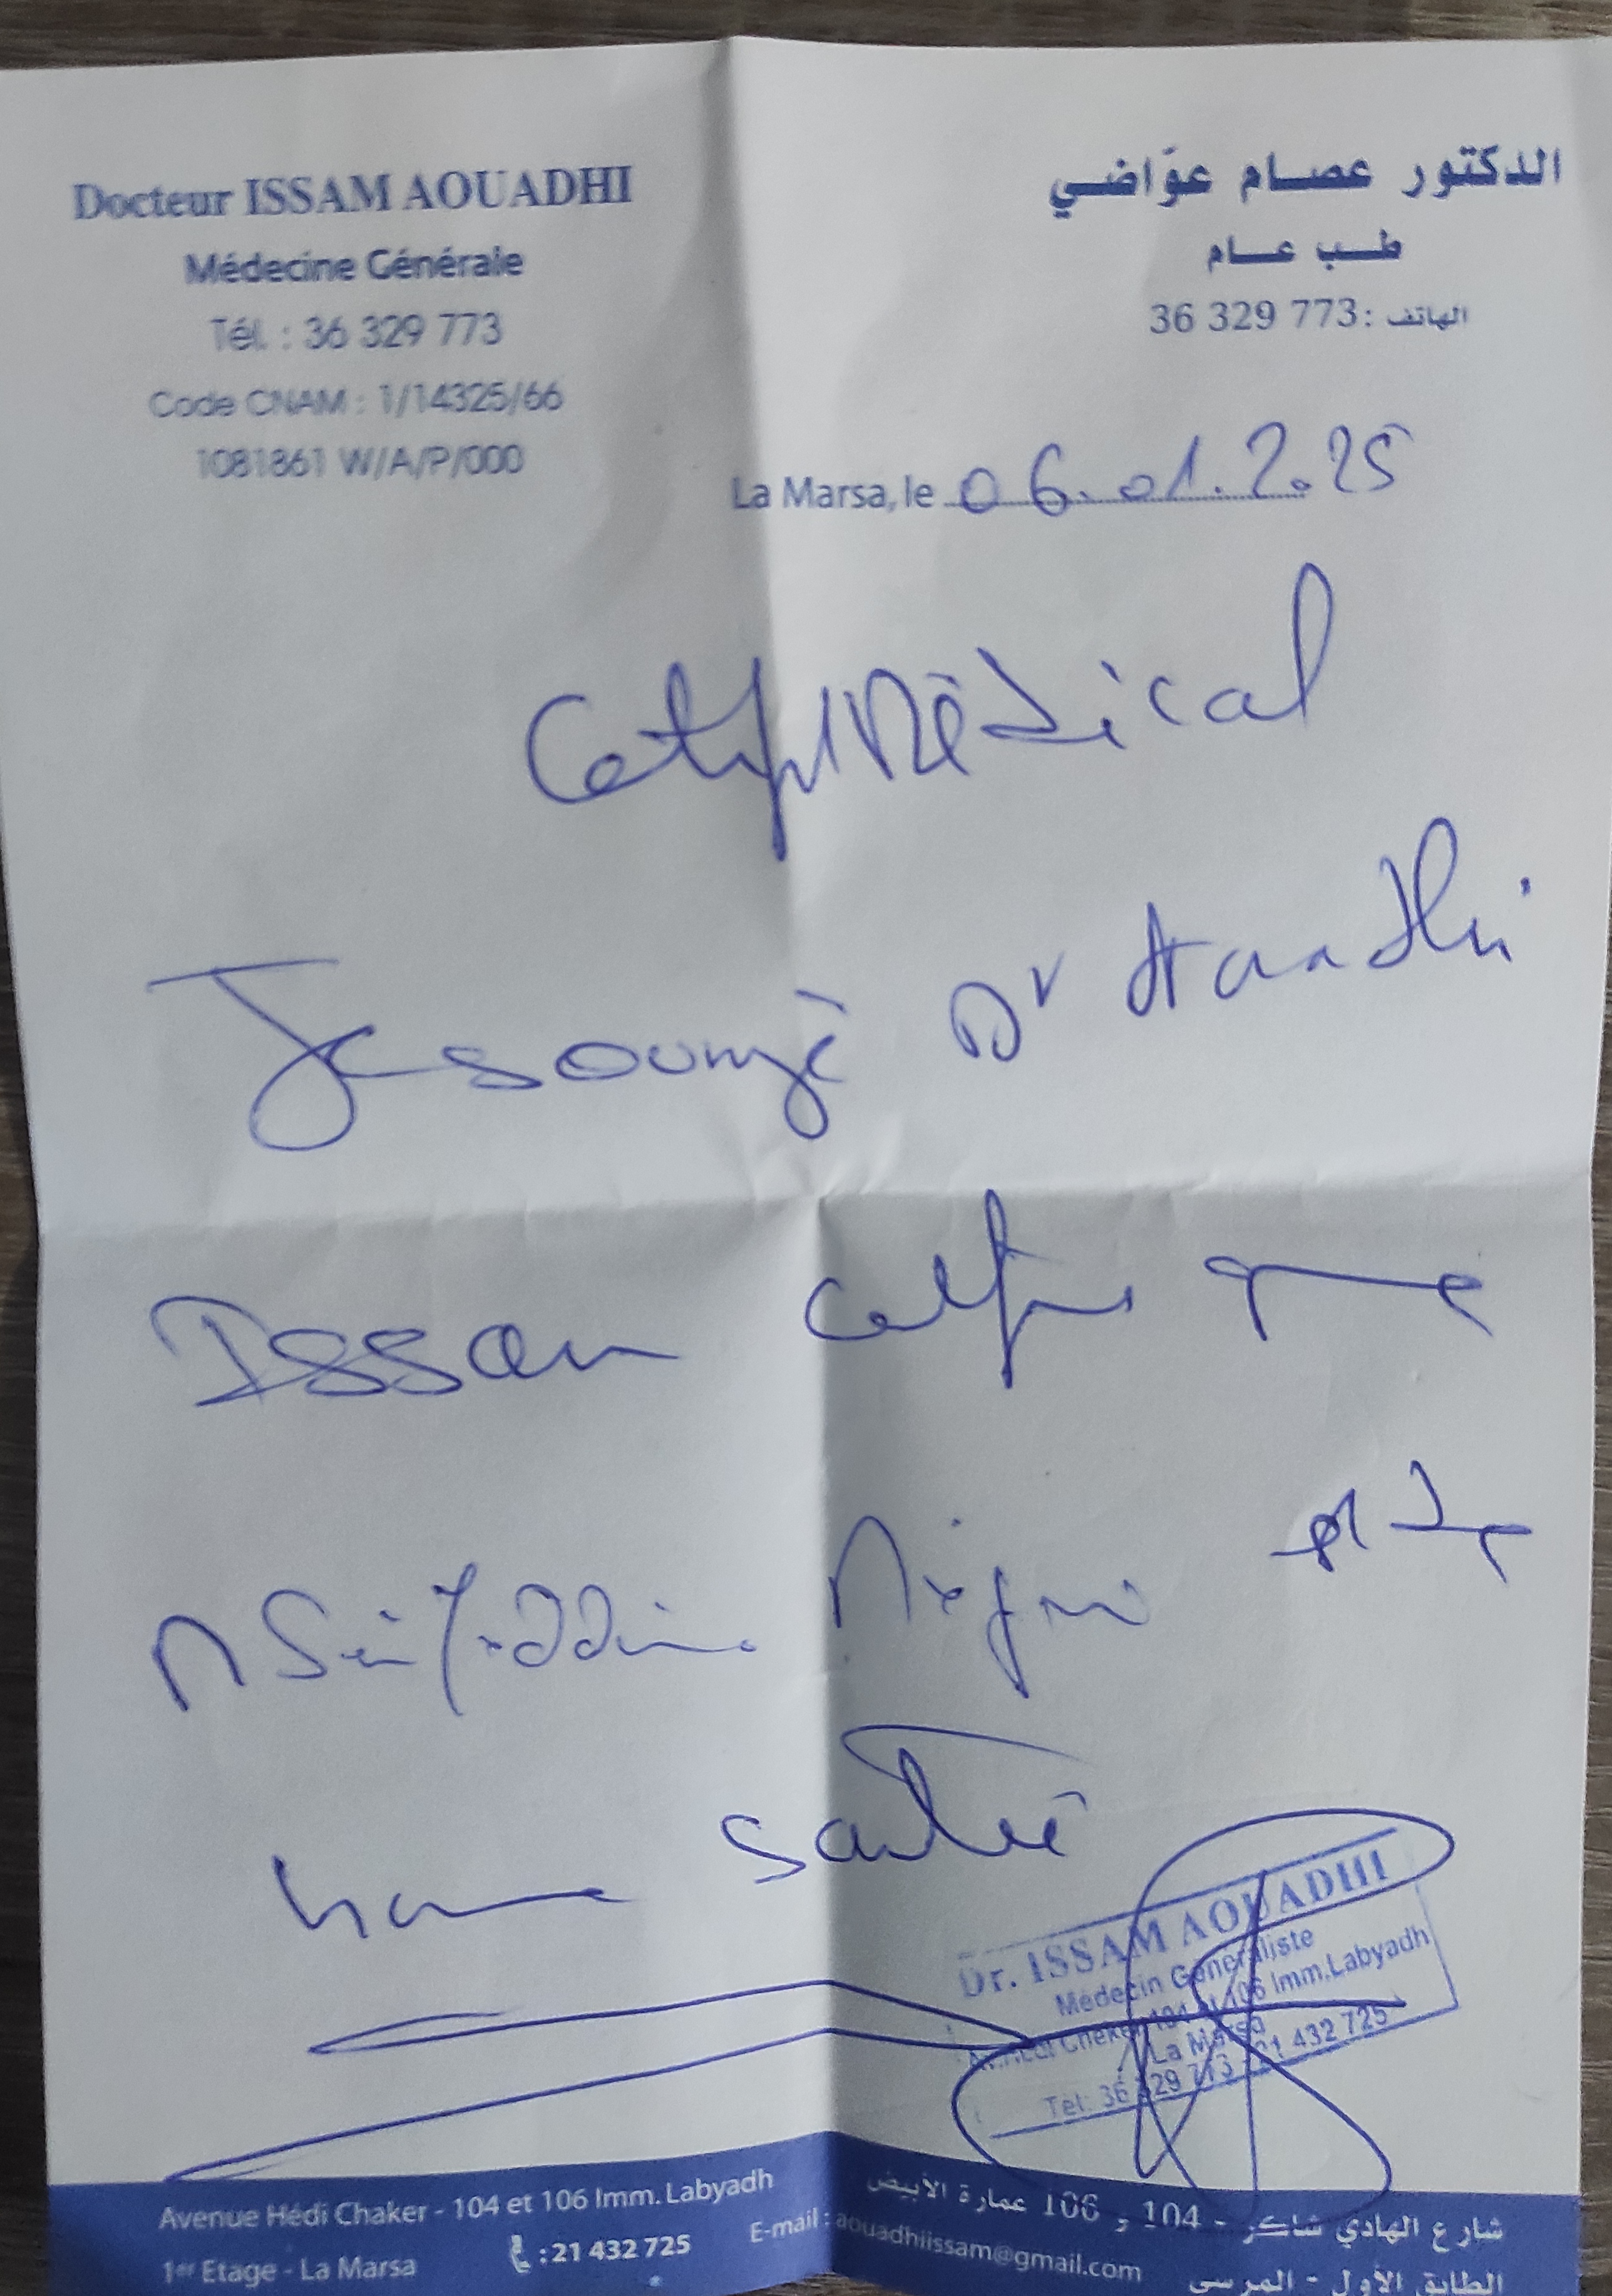 Docteur ISSAM AOUADHI
Médecine Générale
Tél. : 36 329 773
Code CNAM : 1/14325/66
1081861 W/A/P/000
الدكتور عصام عوّاضي
طب عام
الهاتف : 36 329 773
La Marsa, le 06.01.2025
Certificat Médical
Je soussigné Dr Aouadhi
Issam certifie que
M Seifeddine est de
bonne santé
Dr. ISSAM AOUADHI
Médecin Généraliste
Av. Hédi Cheker 104 et 106 Imm.Labyadh
La Marsa
Tél: 36 329 773 - 21 432 725
Avenue Hédi Chaker - 104 et 106 Imm. Labyadh
1er Etage - La Marsa
: 21 432 725
E-mail : aouadhiissam@gmail.com
شارع الهادي شاكر - 104 و 106 عمارة الأبيض
الطابق الأول - المرسى